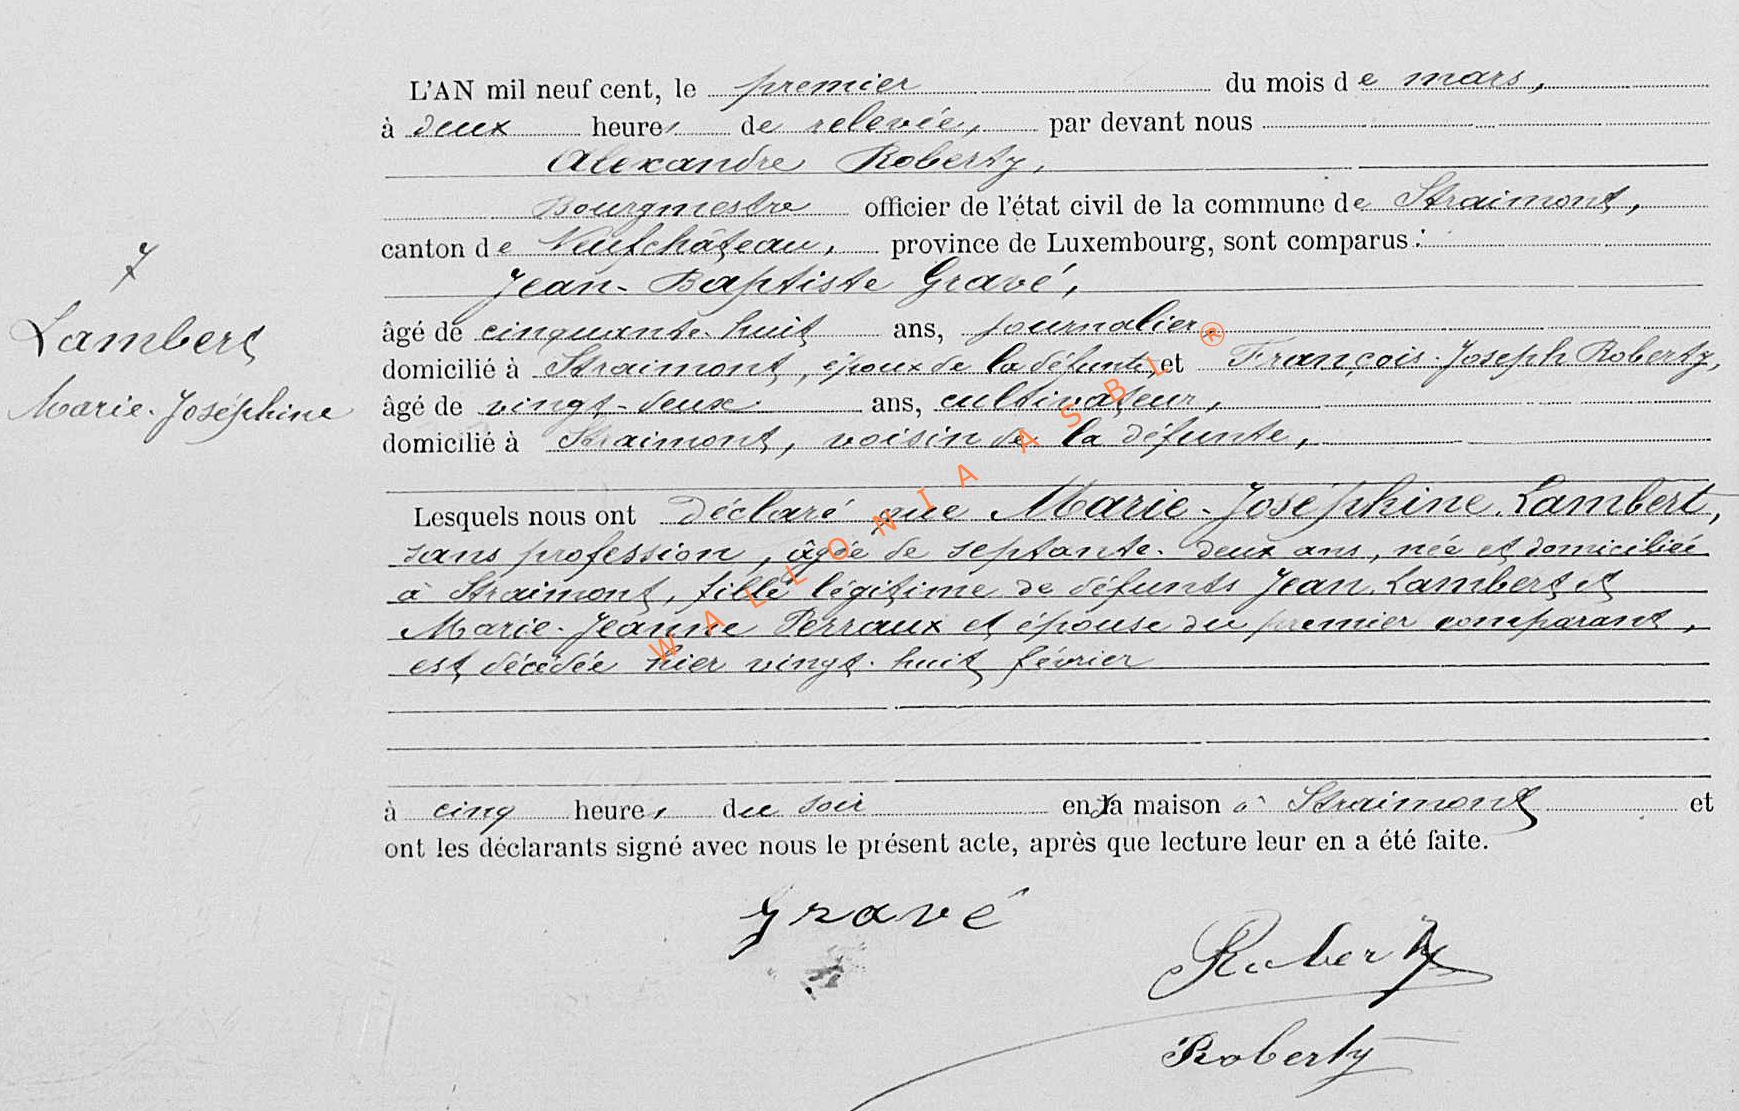 L'AN mil neuf cent, le premier du mois de mars,
à deux heures de relevée, par devant nous
Alexandre Roberty,
Bourgmestre officier de l'état civil de la commune de Straimont,
canton de Neufchâteau, province de Luxembourg, sont comparus :
Jean-Baptiste Gravé,
âgé de cinquante-huit ans, journalier
domicilié à Straimont, époux de la défunte, et François-Joseph Roberty,
âgé de vingt-deux ans, cultivateur,
domicilié à Straimont, voisin de la défunte,
7
Lambert
Marie-Joséphine
Lesquels nous ont déclaré que Marie-Joséphine Lambert,
sans profession, âgée de septante-deux ans, née et domiciliée
à Straimont, fille légitime de défunts Jean Lambert et
Marie-Jeanne Perraux et épouse du premier comparant,
est décédée hier vingt-huit février
à cinq heures du soir en sa maison à Straimont et
ont les déclarants signé avec nous le présent acte, après que lecture leur en a été faite.
Gravé
Roberty
Roberty
WALLONIA ASBL ®